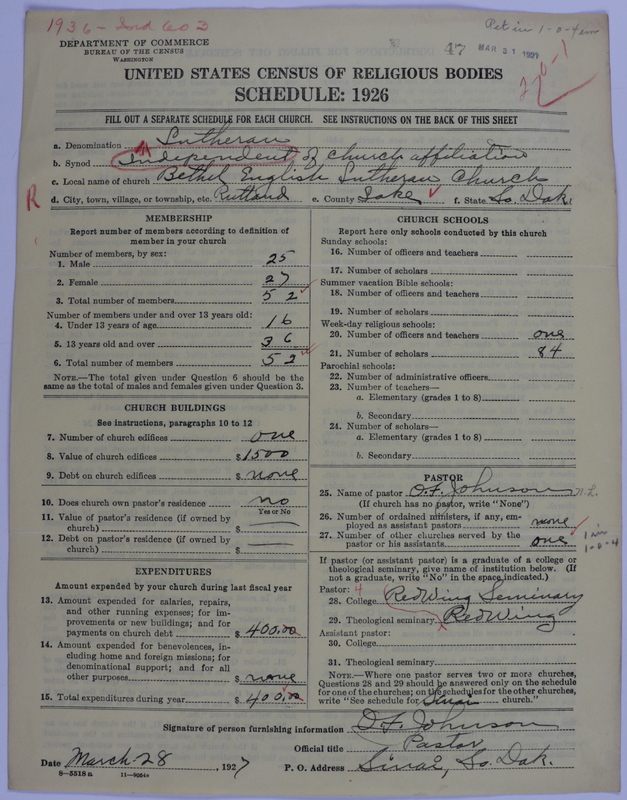 1936-
Pet in 1-0-4
47 MAR 31 1927
DEPARTMENT OF COMMERCE
BUREAU OF THE CENSUS
WASHINGTON
UNITED STATES CENSUS OF RELIGIOUS BODIES
SCHEDULE: 1926
FILL OUT A SEPARATE SCHEDULE FOR EACH CHURCH. SEE INSTRUCTIONS ON THE BACK OF THIS SHEET
a. Denomination Lutheran
b. Synod Independent of church affiliation
c. Local name of church Bethel English Lutheran Church
R
d. City, town, village, or township, etc. Rutland e. County Lake f. State So. Dak.
MEMBERSHIP
Report number of members according to definition of
member in your church
Number of members, by sex:
1. Male 25
2. Female 27
3. Total number of members 52
Number of members under and over 13 years old:
4. Under 13 years of age 16
5. 13 years old and over 36
6. Total number of members 52
NOTE.—The total given under Question 6 should be the
same as the total of males and females given under Question 3.
CHURCH BUILDINGS
See instructions, paragraphs 10 to 12
7. Number of church edifices one
8. Value of church edifices $1500
9. Debt on church edifices $ none
10. Does church own pastor's residence no
Yes or No
11. Value of pastor's residence (if owned by
church) $
12. Debt on pastor's residence (if owned by
church) $
EXPENDITURES
Amount expended by your church during last fiscal year
13. Amount expended for salaries, repairs,
and other running expenses; for im-
provements or new buildings; and for
payments on church debt $ 400.00
14. Amount expended for benevolences, in-
cluding home and foreign missions; for
denominational support; and for all
other purposes $ none
15. Total expenditures during year $ 400.00
CHURCH SCHOOLS
Report here only schools conducted by this church
Sunday schools:
16. Number of officers and teachers
17. Number of scholars
Summer vacation Bible schools:
18. Number of officers and teachers
19. Number of scholars
Week-day religious schools:
20. Number of officers and teachers one
21. Number of scholars 84
Parochial schools:
22. Number of administrative officers
23. Number of teachers—
a. Elementary (grades 1 to 8)
b. Secondary
24. Number of scholars—
a. Elementary (grades 1 to 8)
b. Secondary
PASTOR
25. Name of pastor O.F. Johnson n.L.
(If church has no pastor, write "None")
26. Number of ordained ministers, if any, em-
ployed as assistant pastors none
27. Number of other churches served by the
pastor or his assistants one
1 in
1-0-4
If pastor (or assistant pastor) is a graduate of a college or
theological seminary, give name of institution below. (If
not a graduate, write "No" in the space indicated.)
Pastor:
28. College Red Wing Seminary
29. Theological seminary Red Wing
Assistant pastor:
30. College
31. Theological seminary
NOTE.—Where one pastor serves two or more churches,
Questions 28 and 29 should be answered only on the schedule
for one of the churches; on the schedules for the other churches,
write "See schedule for Sinai church."
Signature of person furnishing information O.F. Johnson
Official title Pastor
Date March-28 1927 P. O. Address Sinai, So. Dak.
8—5518 a 11—9094